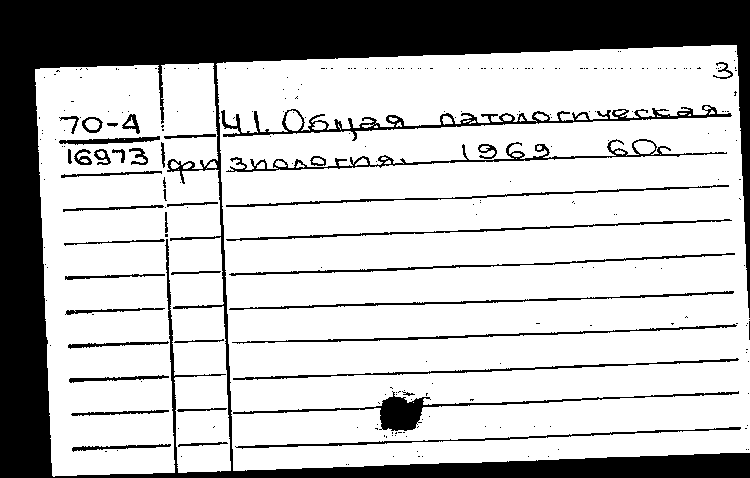 3
70-4 Ч.I. Общая патологическая
16973 физиология. 1969 60с